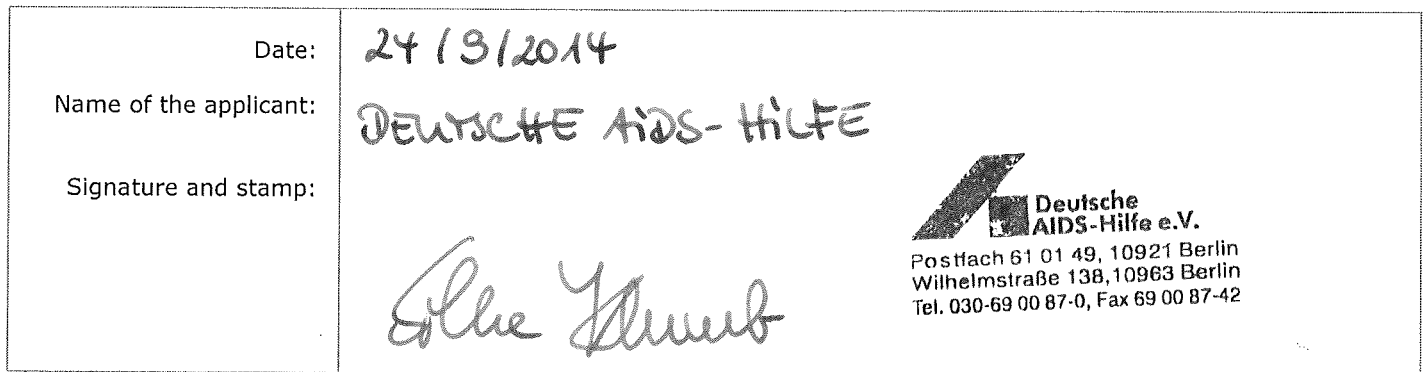 Date: 24/9/2014
Name of the applicant: DEUTSCHE AiDS-HiLFE
Signature and stamp:
Silke
Deutsche
AIDS-Hilfe e.V.
Postfach 61 01 49, 10921 Berlin
Wilhelmstraße 138, 10963 Berlin
Tel. 030-69 00 87-0, Fax 69 00 87-42